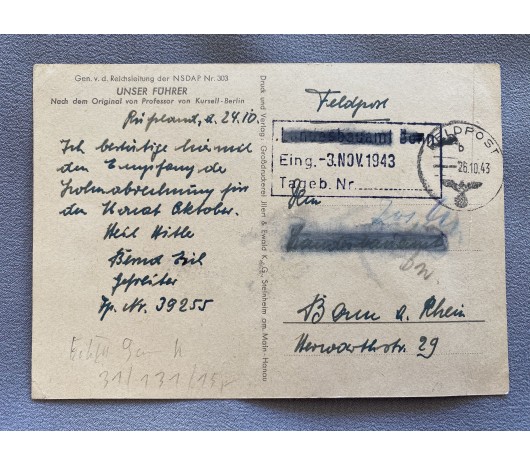 Gen. v. d. Reichsleitung der NSDAP Nr. 303
UNSER FÜHRER
Nach dem Original von Professor von Kursell-Berlin
Rußland, d. 24.10.
Ich bestätige hiermit
den Empfang der
Lohnabrechnung für
den Monat Oktober.
Heil Hitler
Bernd
Gefreiter
Fp. Nr. 39255
31/131/15
Druck und Verlag: Großdruckerei Illert & Ewald K. G., Steinheim am Main - Hanau
Feldpost
Landesbauamt Bonn
Eing. -3. NOV. 1943
Tageb. Nr.
FELDPOST
b
26.10.43
An
Bonn a. Rhein
Herwarthstr. 29